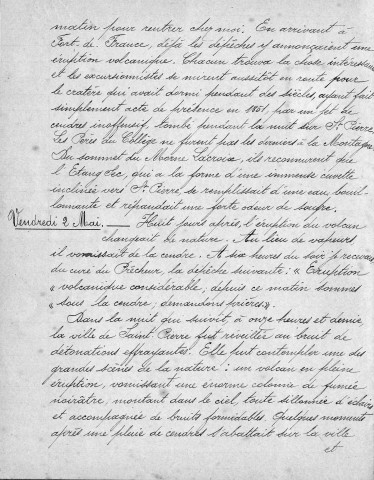 matin pour rentrer chez moi. En arrivant à
Fort-de-France, déjà les dépêches y annonçaient une
éruption volcanique. Chacun trouva la chose intéressante
et les excursionnistes se mirent aussitôt en route pour
le cratère qui avait dormi pendant des siècles, ayant fait
simplement acte de présence en 1851, par un jet de
cendres inoffensif, tombé pendant la nuit sur St Pierre.
Les Pères du Collège ne furent pas les derniers à la Montagne.
Du sommet du Morne Lacroix, ils reconnurent que
l'Etang Sec, qui a la forme d'une immense cuvette
inclinée vers St Pierre, se remplissait d'une eau bouil-
lonnante et répandait une forte odeur de soufre.
Vendredi 2 Mai. — Huit jours après, l'éruption du volcan
changeait de nature. Au lieu de vapeurs,
il vomissait de la cendre. A six heures du soir je recevais
du curé du Prêcheur, la dépêche suivante: « Eruption
« volcanique considérable; depuis ce matin sommes
« sous la cendre; demandons prières ».
Dans la nuit qui suivit à onze heures et demie
la ville de Saint-Pierre fut réveillée au bruit de
détonations effrayantes. Elle put contempler une des
grandes scènes de la nature: un volcan en pleine
éruption, vomissant une énorme colonne de fumée
noirâtre, montant dans le ciel, toute sillonnée d'éclairs
et accompagnée de bruits formidables. Quelques moments
après une pluie de cendres s'abattait sur la ville
et